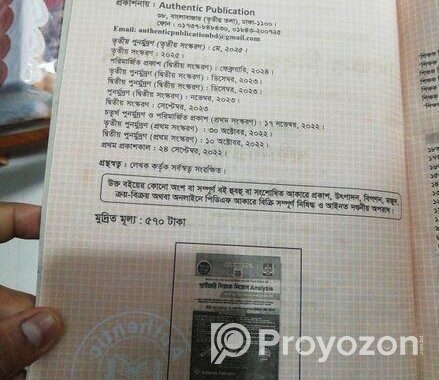 প্রকাশনায় : Authentic Publication
৩৮, বাংলাবাজার (তৃতীয় তলা), ঢাকা-১১০০।
ফোন : ০১৭৩৭-৮৪৮৪৩০, ০১৮৪৩-২০০৭২৫
Email: authenticpublicationbd@gmail.com
তৃতীয় পুনর্মুদ্রণ (তৃতীয় সংস্করণ) : মে, ২০২৫।
তৃতীয় সংস্করণ : ২০২৫।
পরিমার্জিত প্রকাশ (দ্বিতীয় সংস্করণ) : ফেব্রুয়ারি, ২০২৪।
তৃতীয় পুনর্মুদ্রণ (দ্বিতীয় সংস্করণ) : ডিসেম্বর, ২০২৩।
দ্বিতীয় পুনর্মুদ্রণ (দ্বিতীয় সংস্করণ) : ডিসেম্বর, ২০২৩।
পুনর্মুদ্রণ (দ্বিতীয় সংস্করণ) : নভেম্বর, ২০২৩।
দ্বিতীয় সংস্করণ : সেপ্টেম্বর, ২০২৩
চতুর্থ পুনর্মুদ্রণ ও পরিমার্জিত প্রকাশ (প্রথম সংস্করণ) : ১৭ নভেম্বর, ২০২২।
তৃতীয় পুনর্মুদ্রণ (প্রথম সংস্করণ) : ৩০ অক্টোবর, ২০২২।
দ্বিতীয় পুনর্মুদ্রণ (প্রথম সংস্করণ) : ১০ অক্টোবর, ২০২২।
প্রথম প্রকাশকাল : ২৪ সেপ্টেম্বর, ২০২২।
গ্রন্থস্বত্ব : লেখক কর্তৃক সর্বস্বত্ব সংরক্ষিত।
উক্ত বইয়ের কোনো অংশ বা সম্পূর্ণ বই হুবহু বা সংশোধিত আকারে প্রকাশ, উৎপাদন, বিপণন, মজুদ
ক্রয়-বিক্রয় অথবা অনলাইনে পিডিএফ আকারে বিক্রি সম্পূর্ণ নিষিদ্ধ ও আইনত দণ্ডনীয় অপরাধ।
মুদ্রিত মূল্য : ৫৭০ টাকা
প্রাইমারি শিক্ষক নিয়োগ Analysis
Authentic
Proyozon